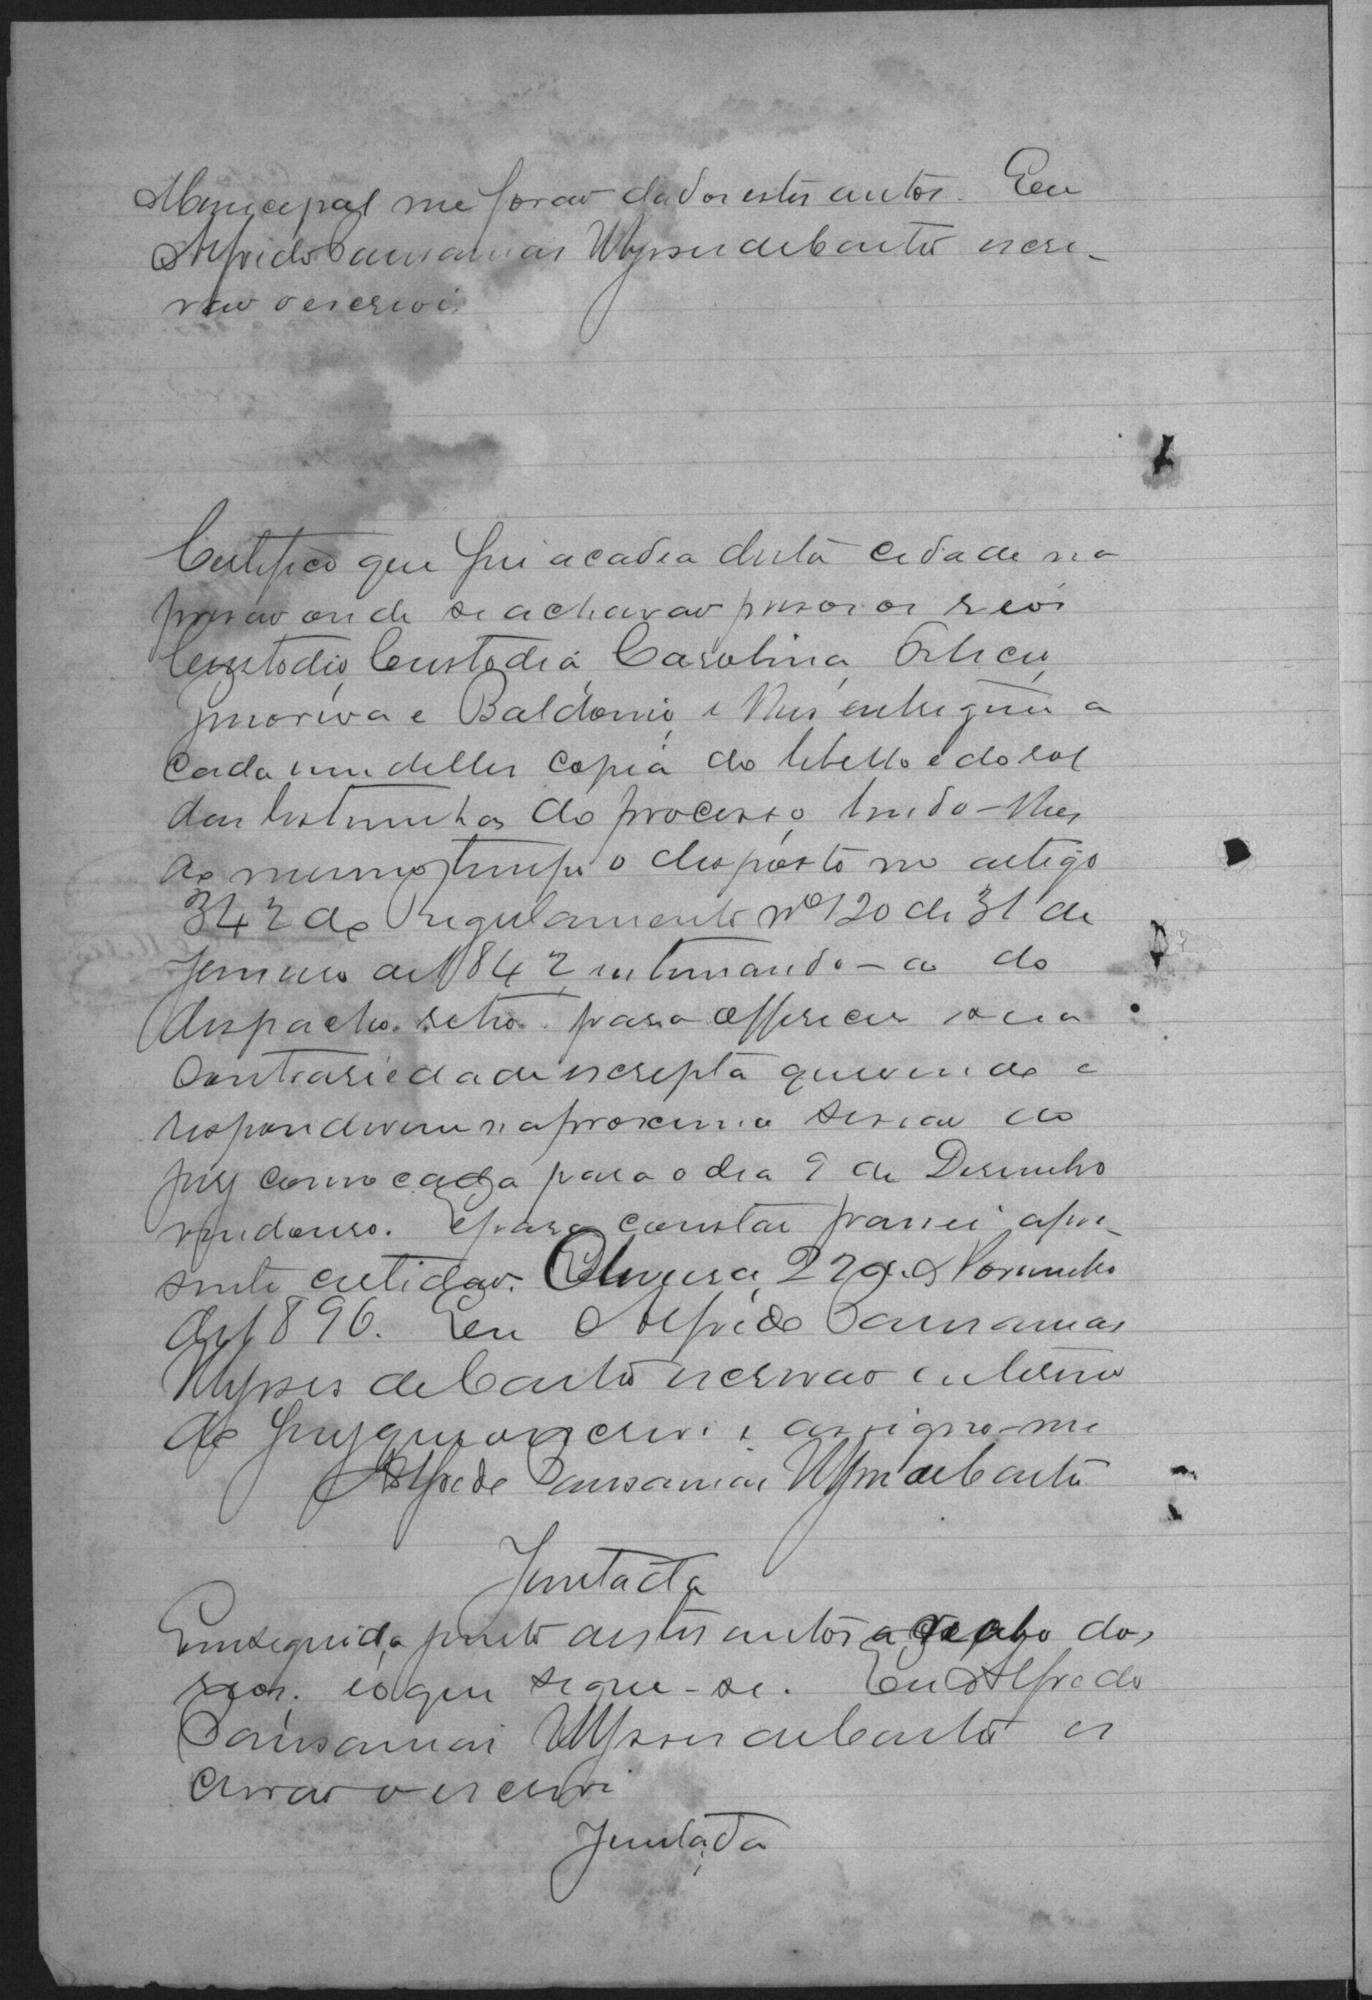 Municipal me forão dados estes autos. Eu
Alfredo Pausanias Ulysses de Castro escri-
vão o escrevi.
Certifico que fui a cadea desta cidade na
prisão onde se achavão presos os reos
Custodio, Custodia, Carolina,
e Baldoino, e lhes entreguei a
cada um delles copia do libello e do rol
das testimunhas do processo, lendo-lhes
ao mesmo tempo o disposto no artigo
342 do Regulamento nº 120 de 31 de
Janeiro de 1842, intimando-os do
despacho retro para offerecer sua
contrariedade escripta querendo e
responderem na proxima sessão do
jury convocada para o dia 9 de Desembro
vindouro. E para constar passei a pre-
sente certidão. 22 de Novembro
de 1896. Eu Alfredo Pausanias
Ulysses de Castro escrivão interino
do Jury que o escrevi e assigno-me
Alfredo Pausanias Ulysses de Castro
Juntada
Em seguida junto a estes autos o dos
reos. e o que segue-se. Eu Alfredo
Pausanias Ulysses de Castro es
crivão o escrevi
Juntada